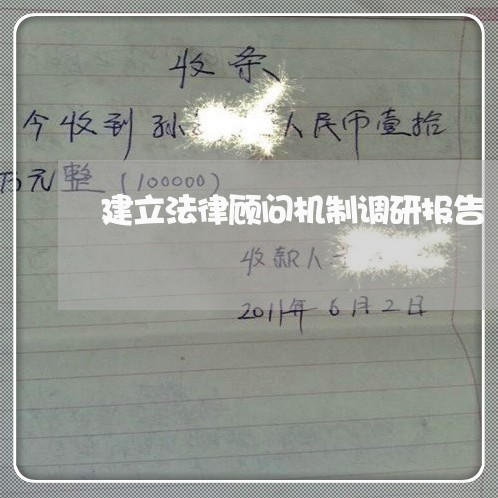 收条
今收到孙 人民币壹拾
万元整(100000)
建立法律顾问机制调研报告
收款人
2011年6月2日